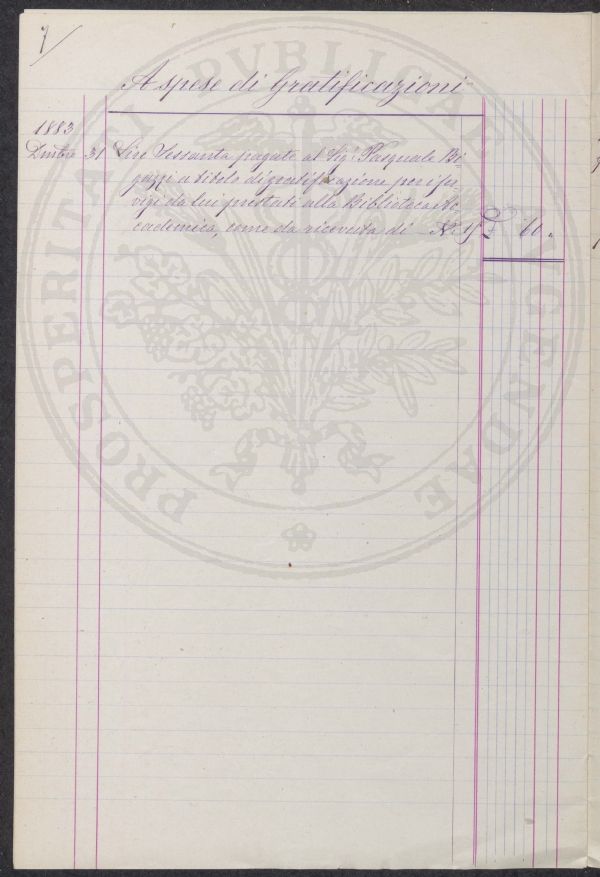 7
A spese di Gratificazioni
1883
Dmbre 31 Lire Sessanta pagate al Sigr. Pasquale Bi
gazzi a titolo di gratificazione per i ser
vigi da lui prestati alla Biblioteca Ac
cademica, come da ricevuta di N. £ 60 "
PROSPERITATI PVBLICAE AVGENDAE